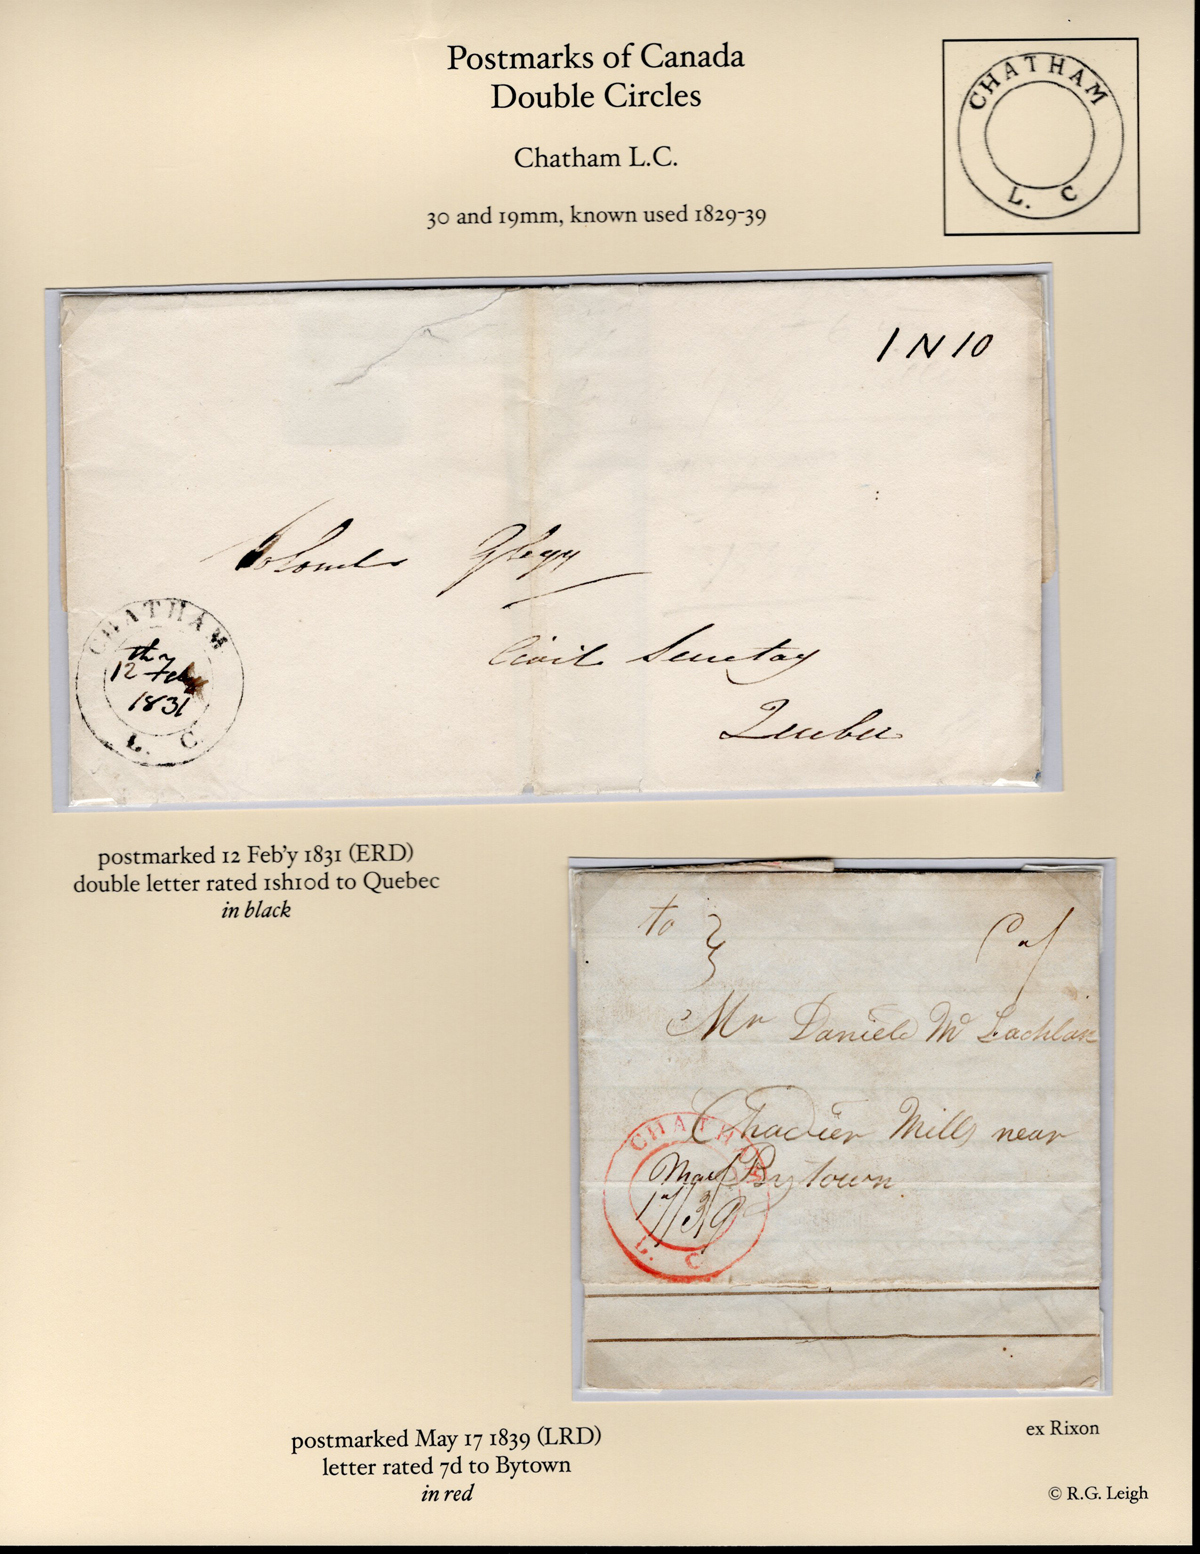 Postmarks of Canada
Double Circles
Chatham L.C.
30 and 19mm, known used 1829-39
CHATHAM
L. C
1 N 10
Colonel Glegg
Civil Secretay
Quebec
CHATHAM
12 Feby
1831
L. C
postmarked 12 Feb'y 1831 (ERD)
double letter rated 1sh10d to Quebec
in black
to
Mr Daniel Mc Lachlan
Chadier Mills near
Bytown
CHATHAM
May
17/39
L. C
postmarked May 17 1839 (LRD)
letter rated 7d to Bytown
in red
ex Rixon
© R.G. Leigh